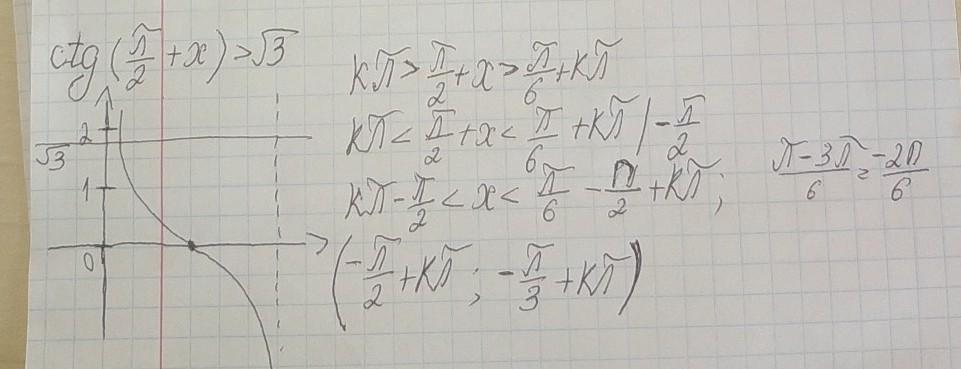 ctg(π/2 + x) > √3
kπ > π/2 + x > π/6 + kπ
kπ < π/2 + x < π/6 + kπ | - π/2
kπ - π/2 < x < π/6 - π/2 + kπ; (π-3π)/6 = -2π/6
(-π/2 + kπ; -π/3 + kπ)
2
√3
1
0